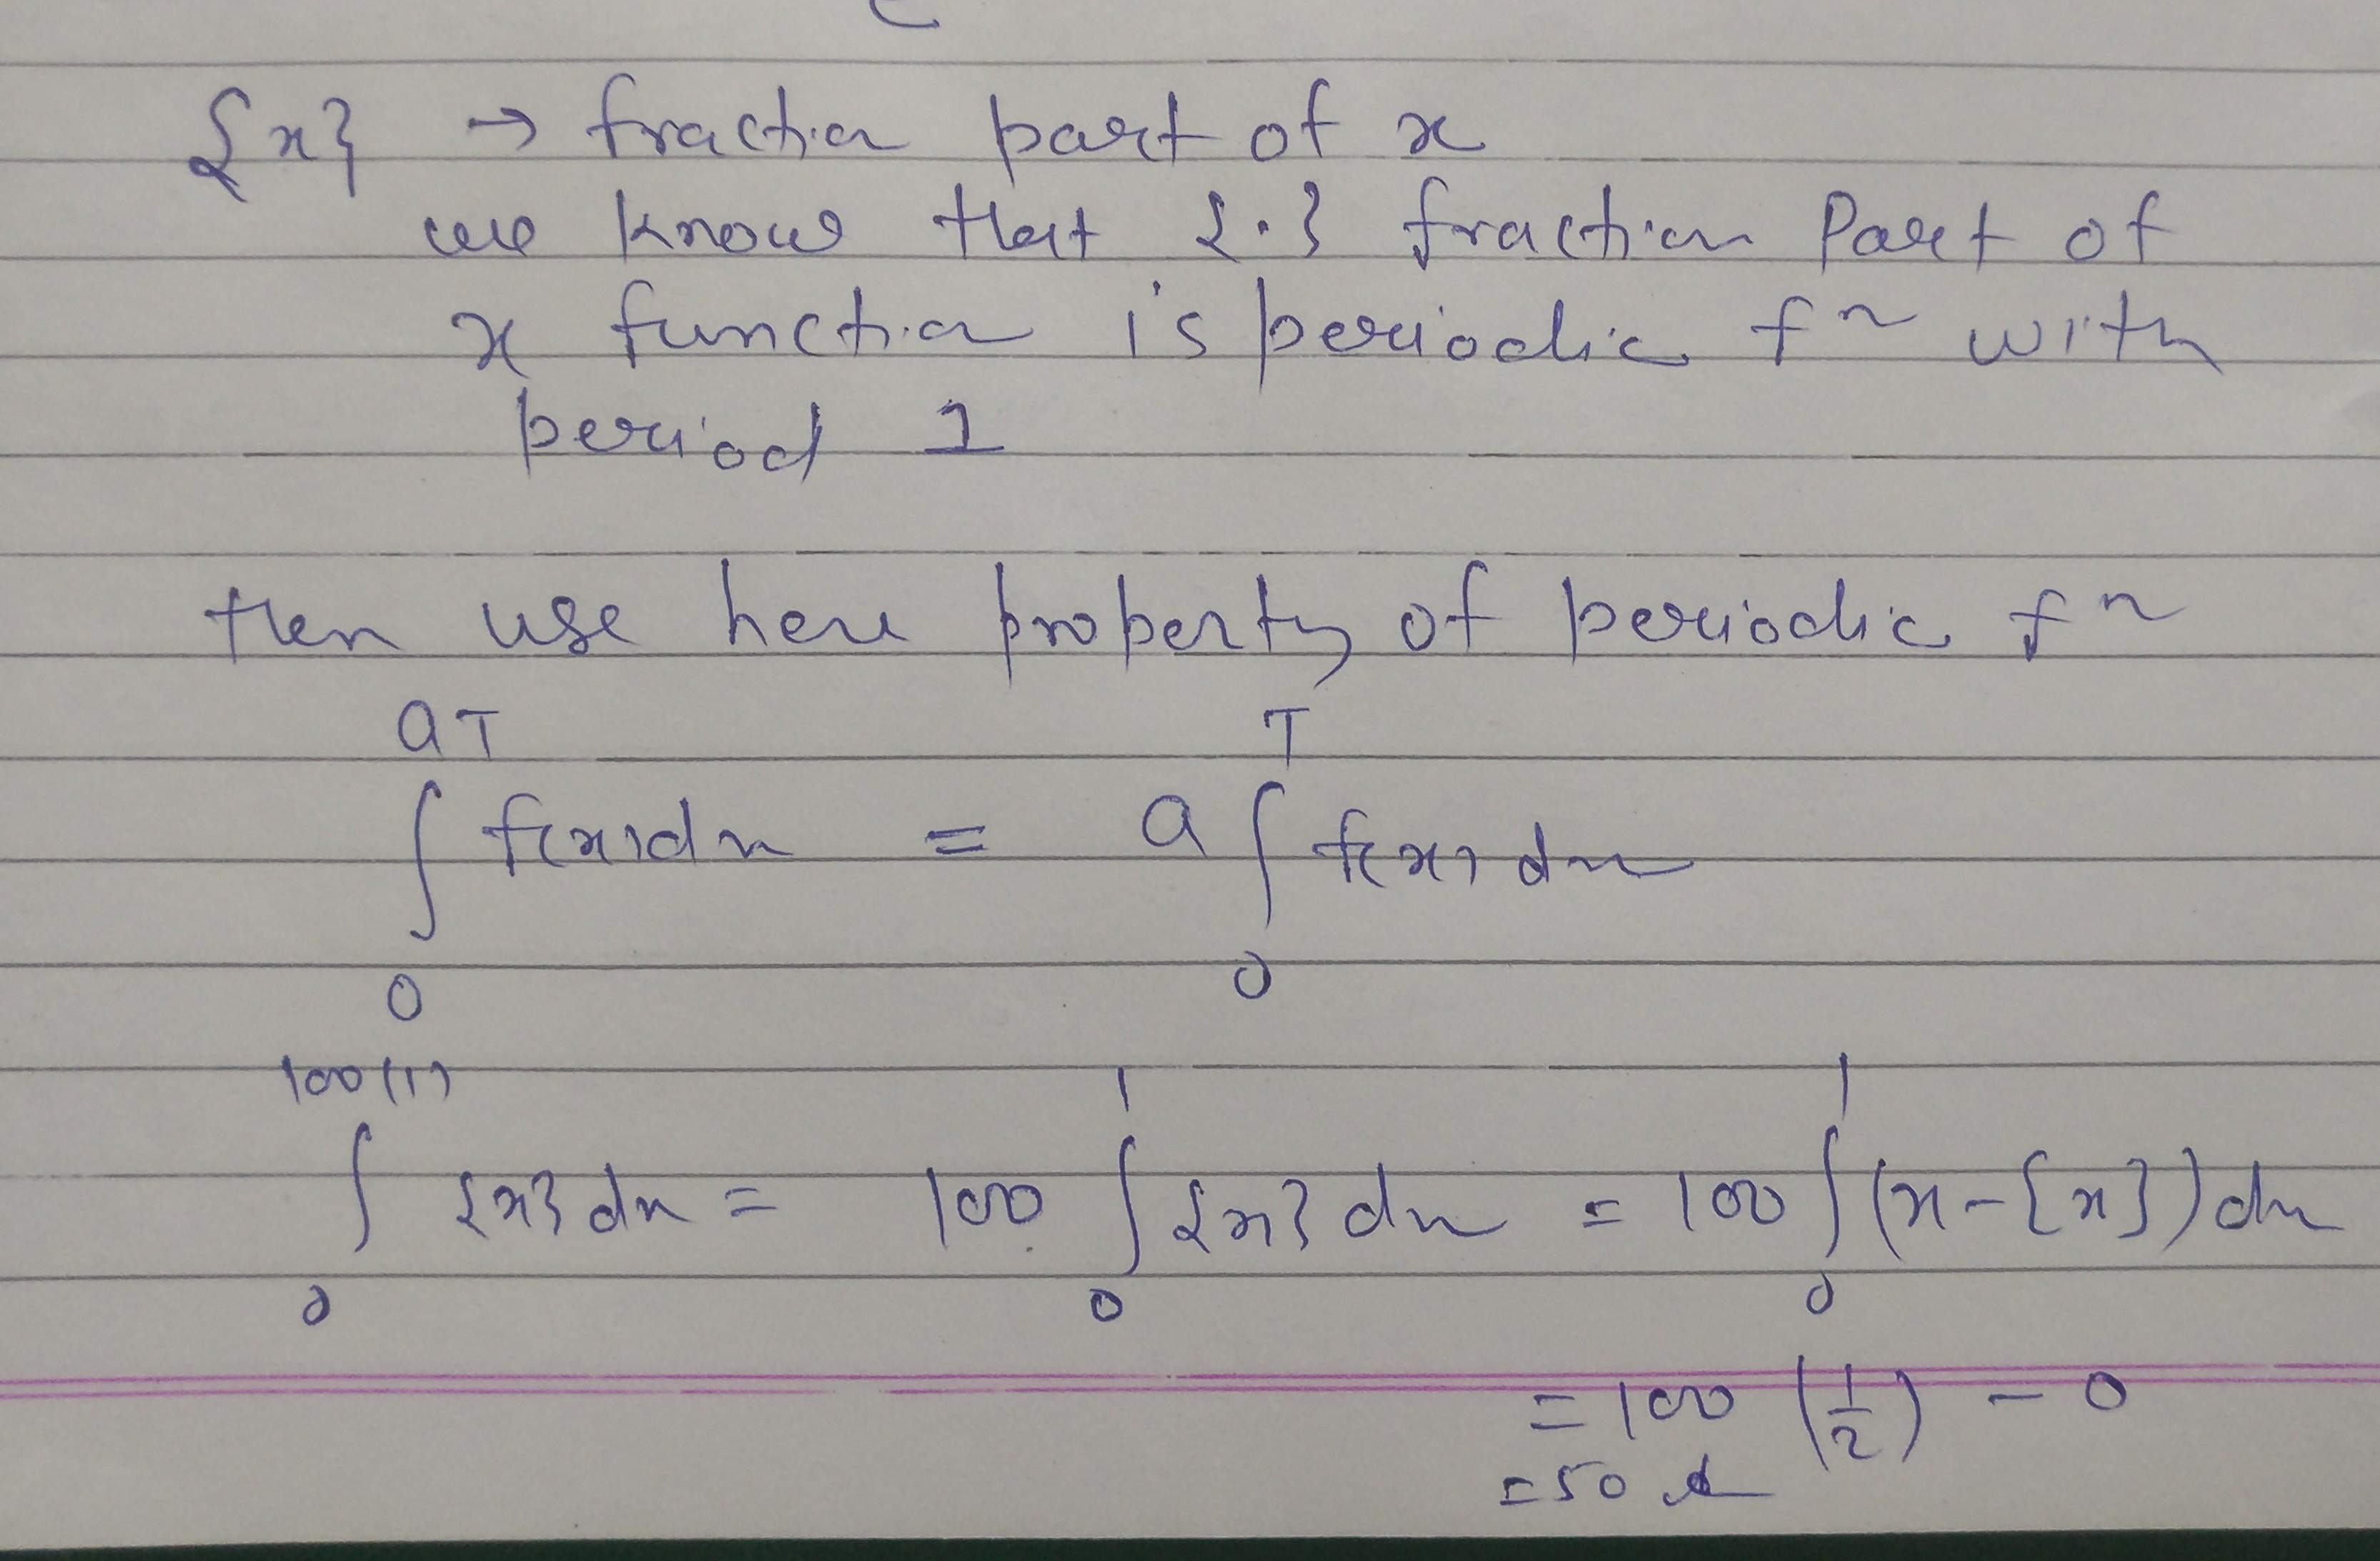 {x} → fraction part of x
we know that {.} fraction Part of
x function is periodic fn with
period 1
then use here property of periodic fn
aT T
∫ f(x)dx = a ∫ f(x) dx
0 0
100(1) 1 1
∫ {x} dx = 100 ∫ {x} dx = 100 ∫ (x-[x]) dx
0 0 0
= 100 (1/2) - 0
= 50